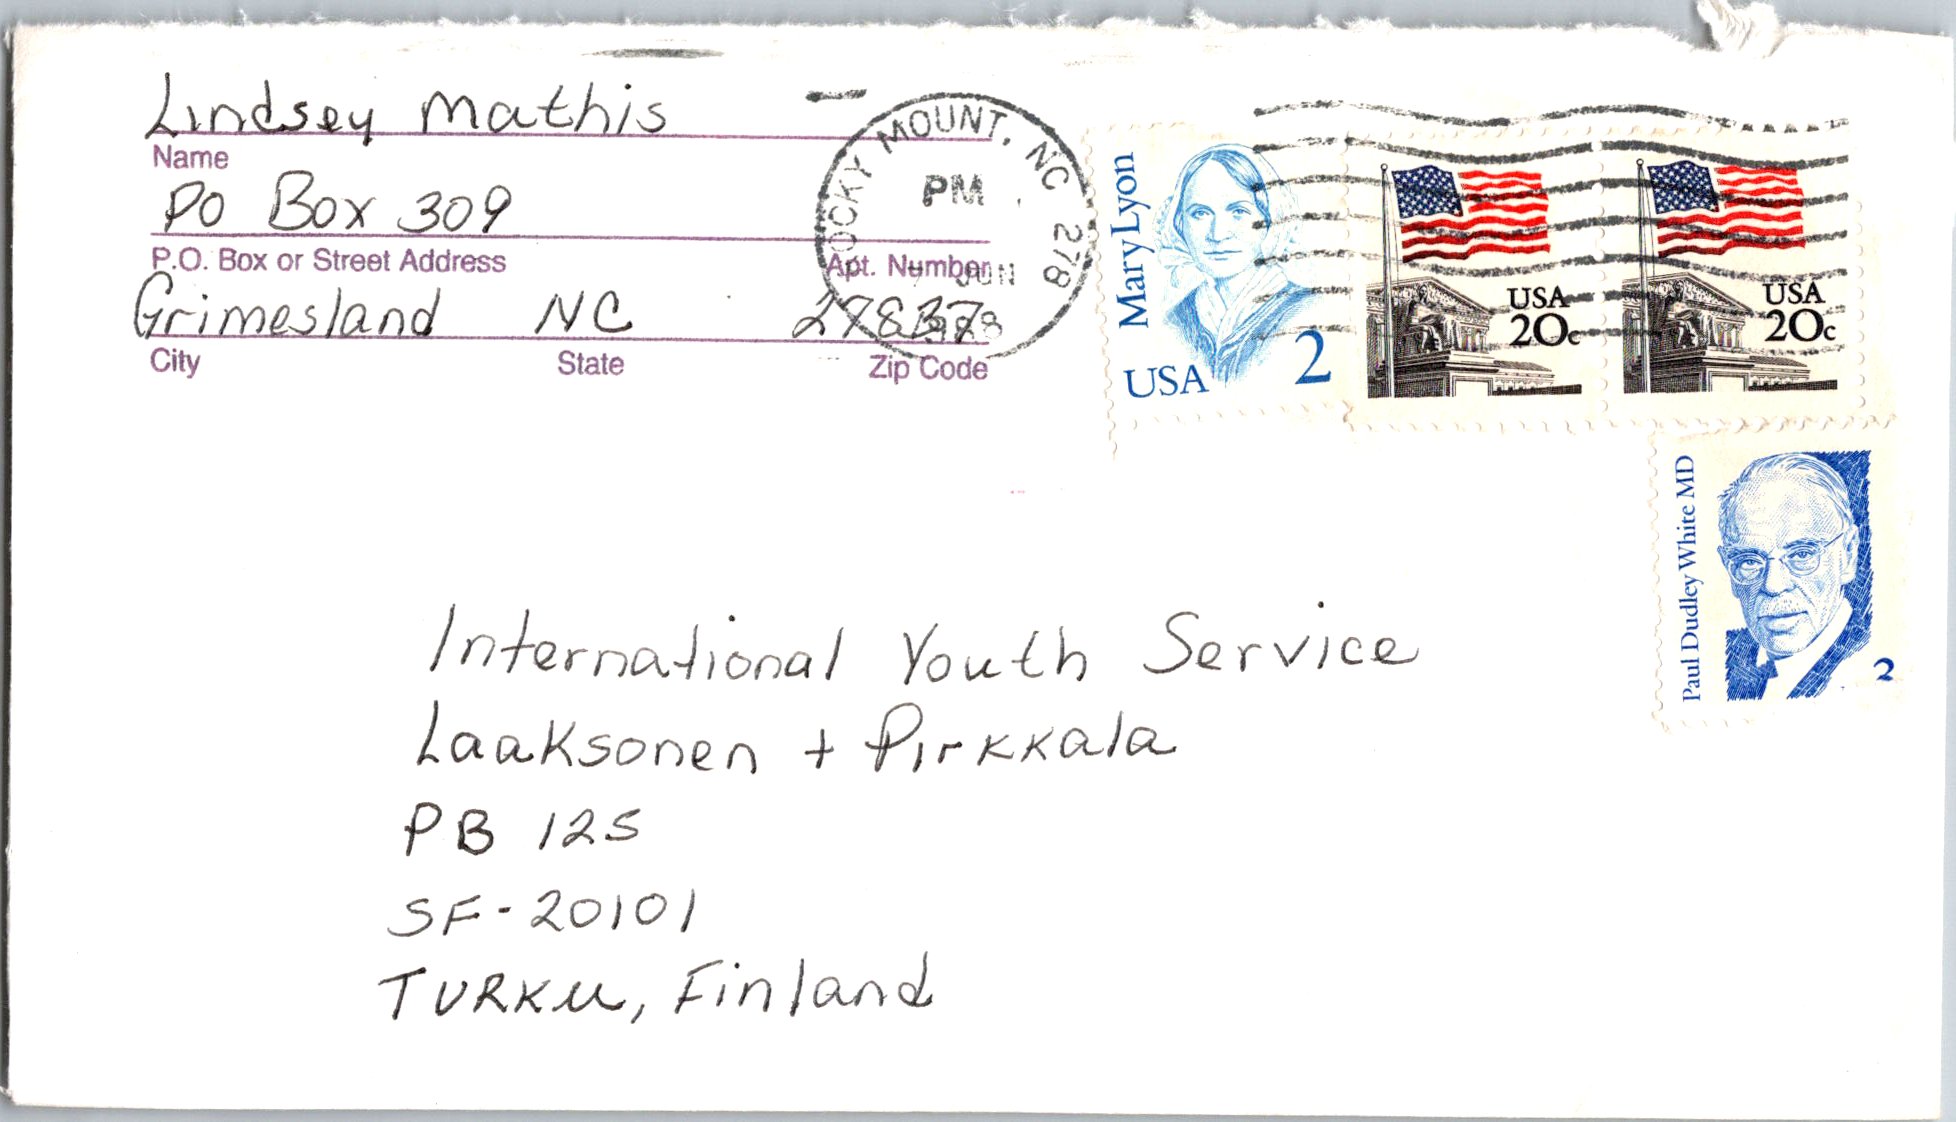 Lindsey Mathis
Name
PO Box 309
P.O. Box or Street Address Apt. Number
Grimesland NC 27837
City State Zip Code
ROCKY MOUNT, NC 278
PM
JUN
Mary Lyon
USA 2
USA
20c
USA
20c
Paul Dudley White MD
2
International Youth Service
Laaksonen + Pirkkala
PB 125
SF-20101
TURKU, Finland